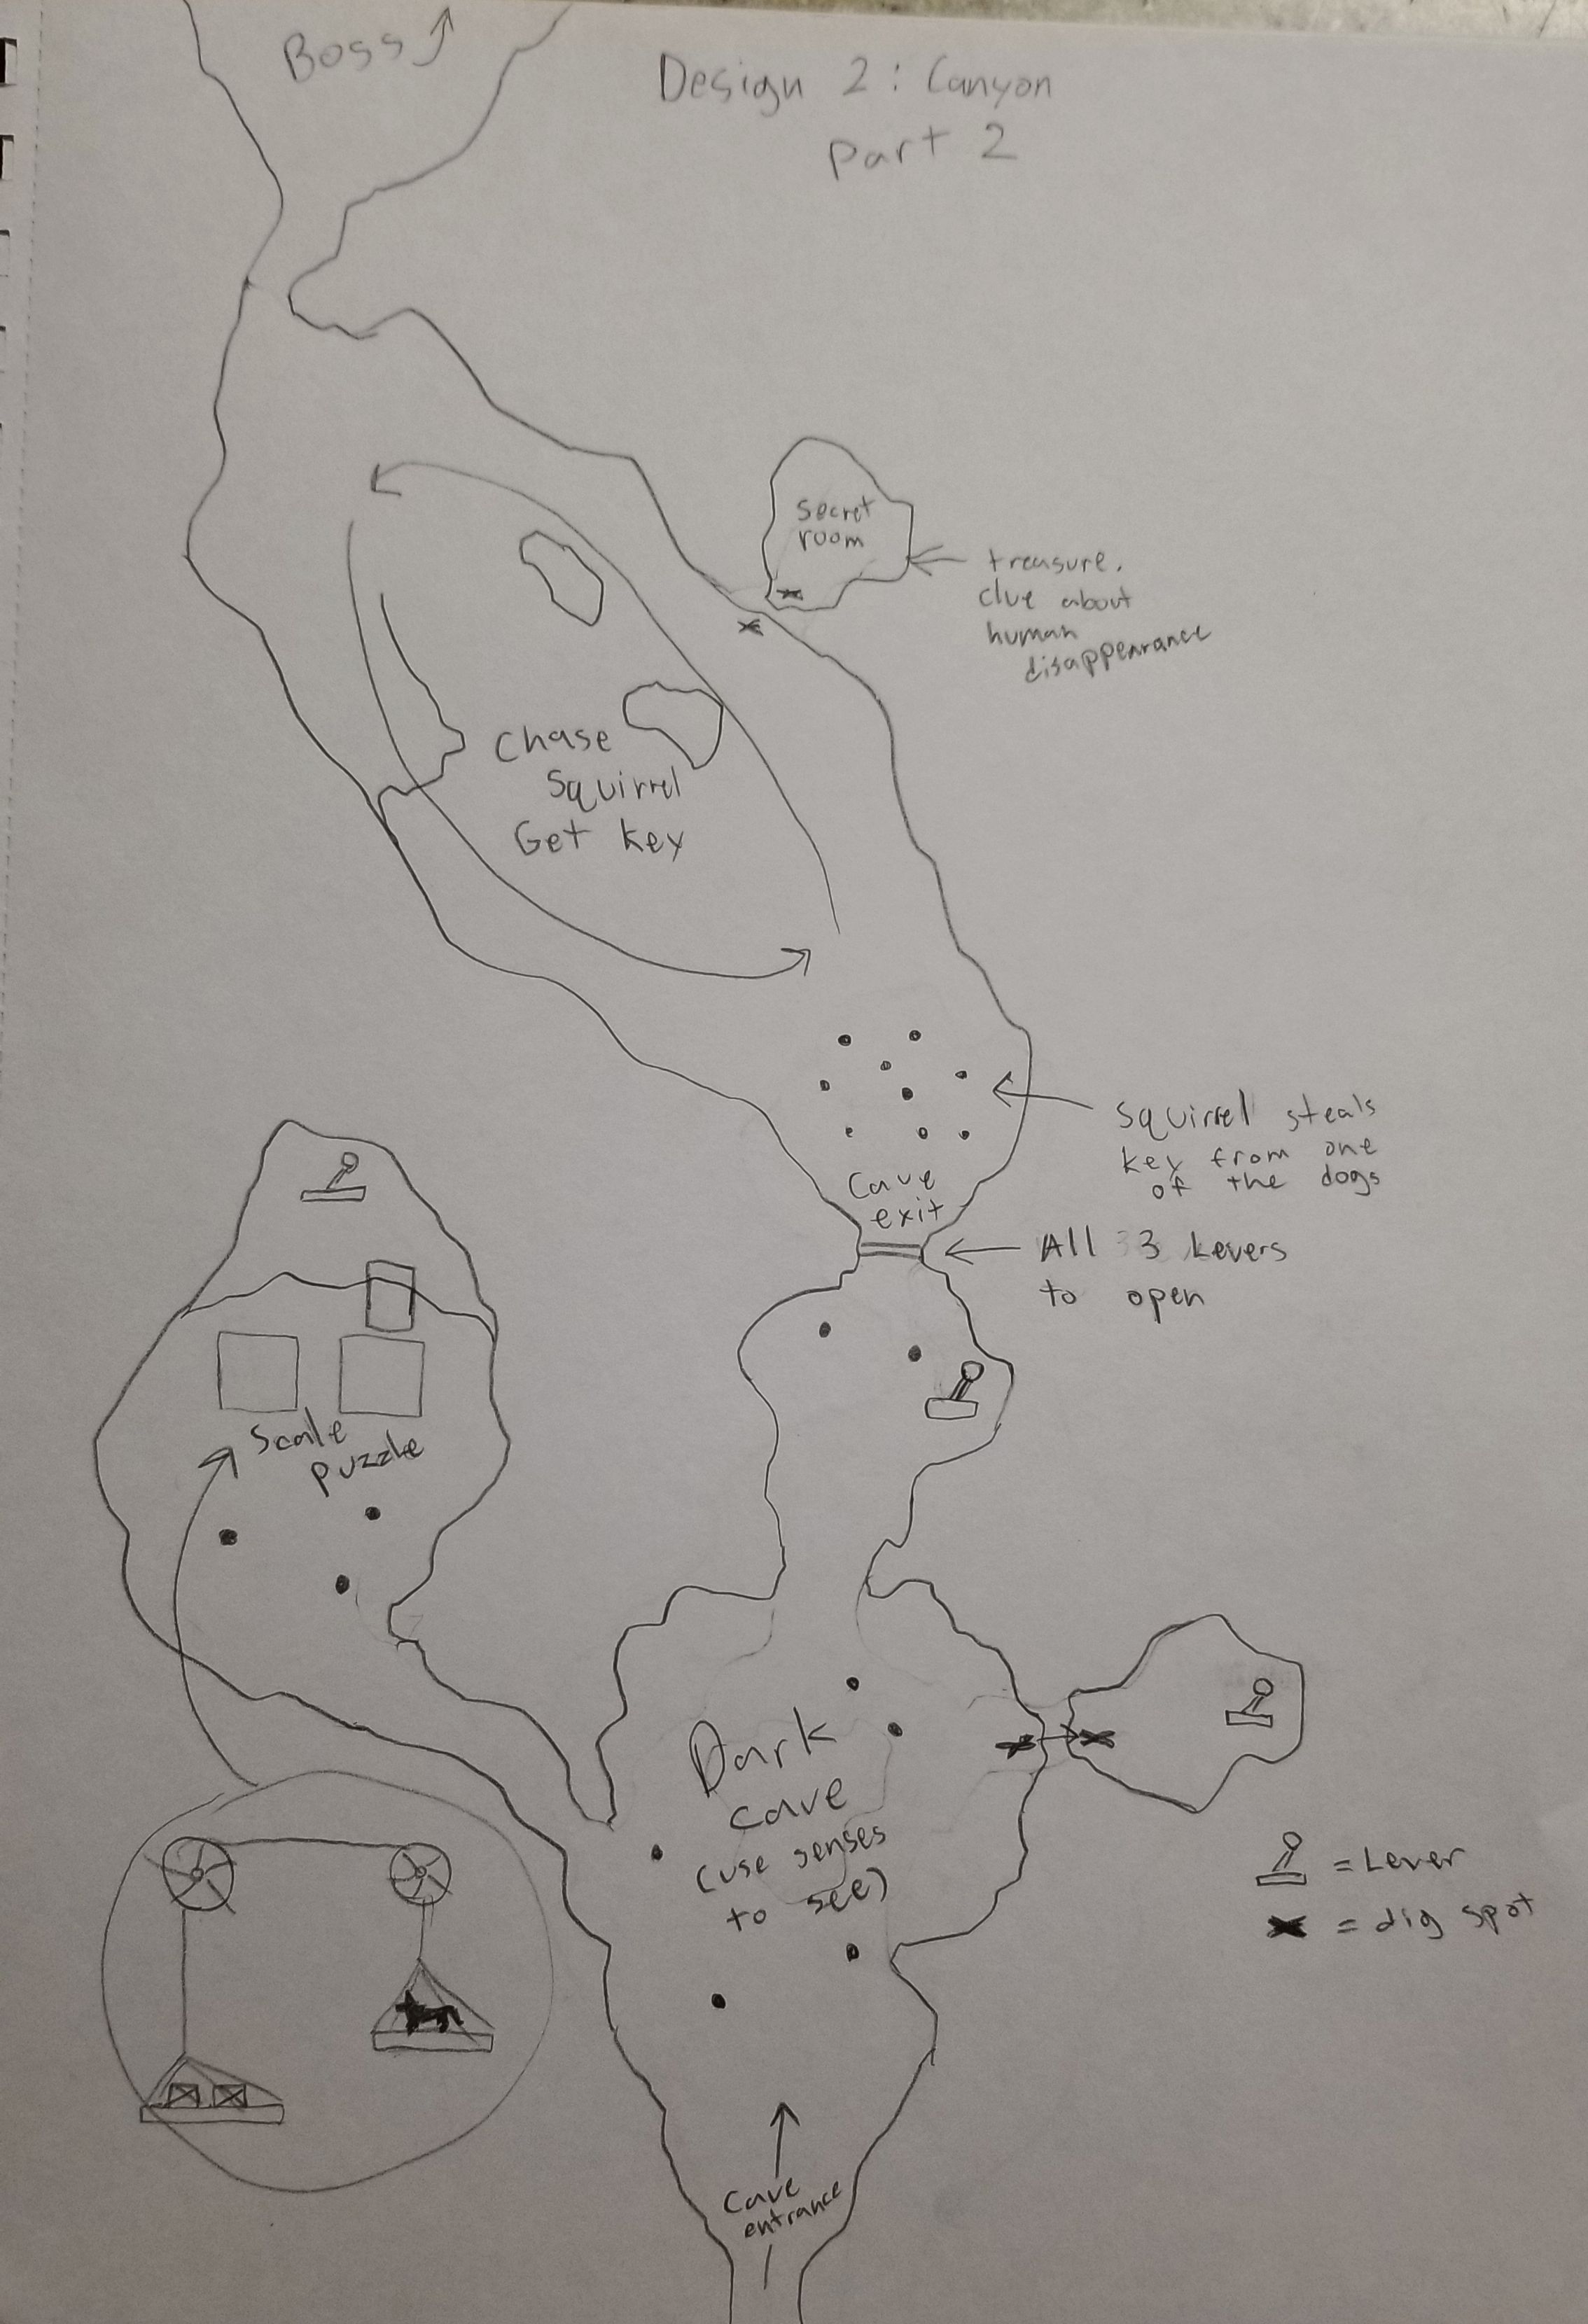 Boss
Design 2: Canyon
Part 2
secret
room
treasure.
clue about
human
disappearance
Chase
Squirrel
Get key
Squirrel steals
key from one
of the dogs
Cave
exit
All 3 Levers
to open
Scale
puzzle
Dark
cave
(use senses
to see)
= Lever
= dig spot
Cave
entrance